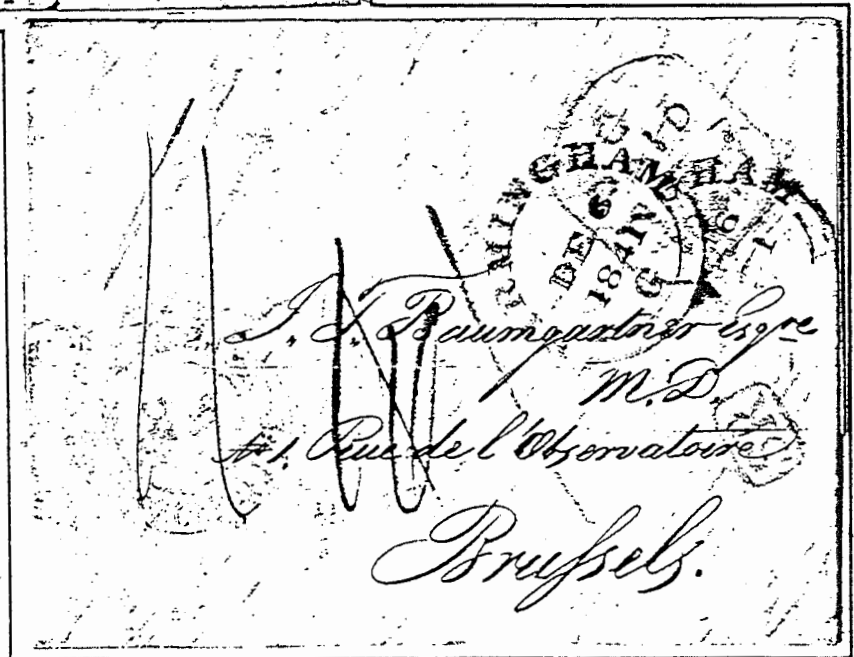 BIRMINGHAM
DE 6
1841
G
HAM
J. T. Baumgartner Esqre
M.D.
No 1. Rue de l'Observatoire
Brussels.